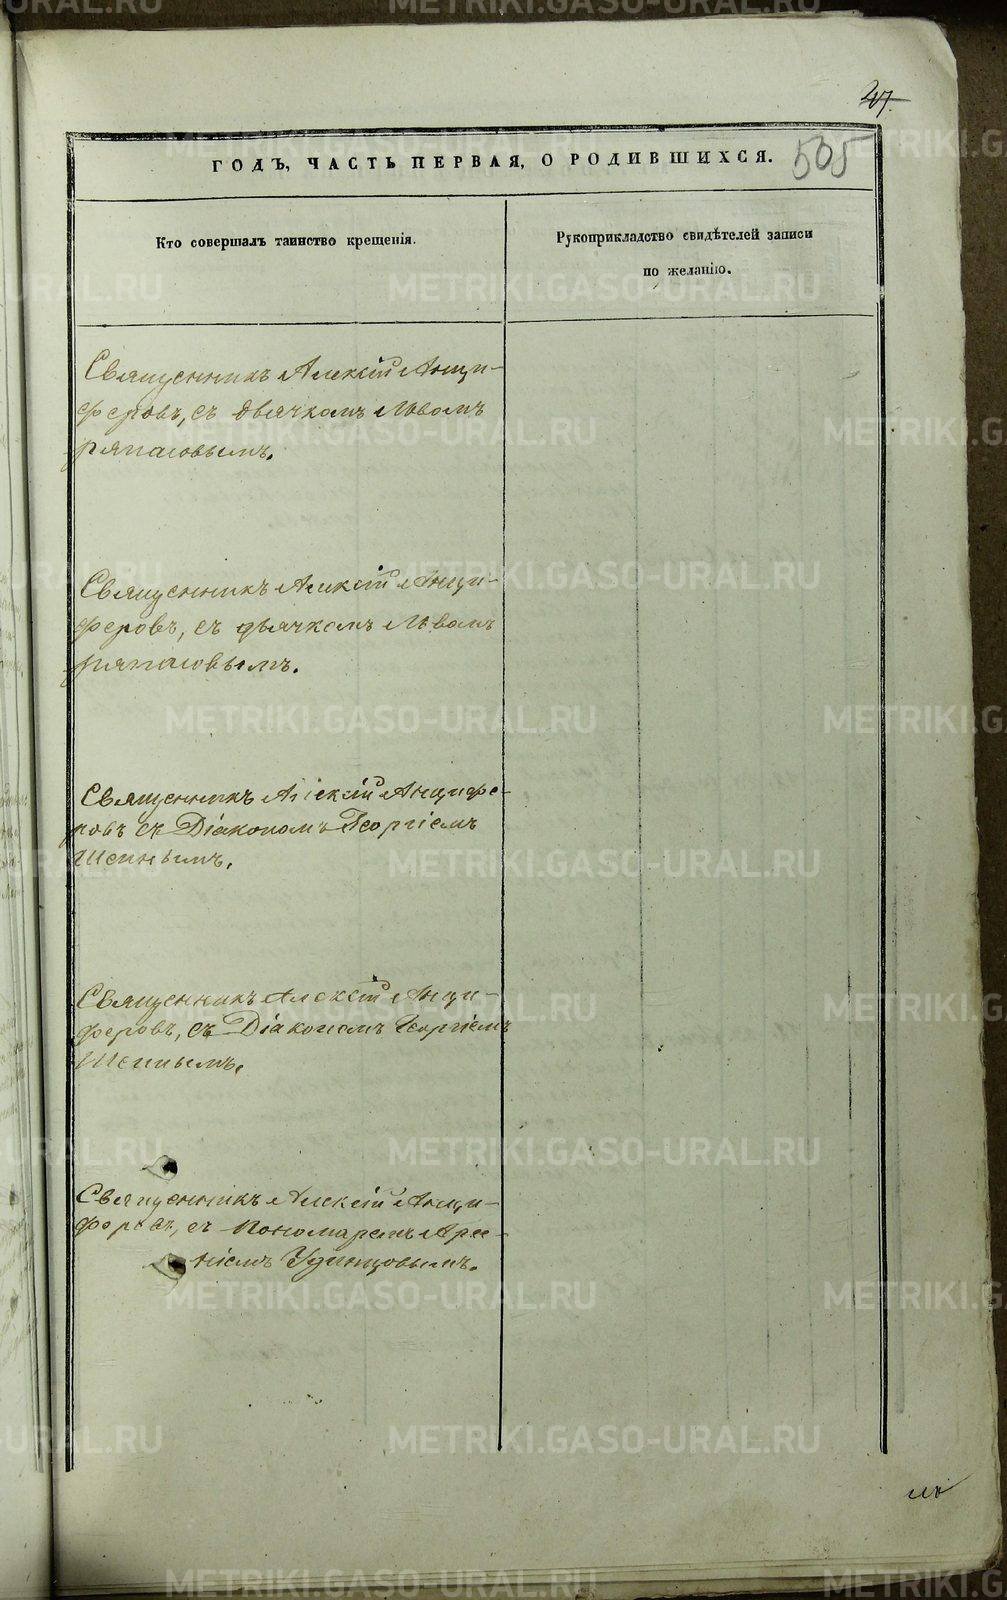 47.
505
ГОДЪ, ЧАСТЬ ПЕРВАЯ, О РОДИВШИХСЯ.
Кто совершалъ таинство крещенія.
Рукоприкладство свидѣтелей записи
по желанію.
Священникъ Алексій Анци-
феровъ, съ дьячкомъ Львомъ
ряпасовымъ.
Священникъ Алексій Анци-
феровъ, съ дьячкомъ Львомъ
ряпасовымъ.
Священникъ Алексій Анцифе-
ровъ съ Діакономъ Георгіемъ
Шеинымъ.
Священникъ Алексій Анци-
феровъ, съ Діакономъ Георгіемъ
Шеинымъ.
Священникъ Алексій Анци-
феровъ, съ Пономаремъ Арсе-
ніемъ Удинцовымъ.
METRIKI.GASO-URAL.RU